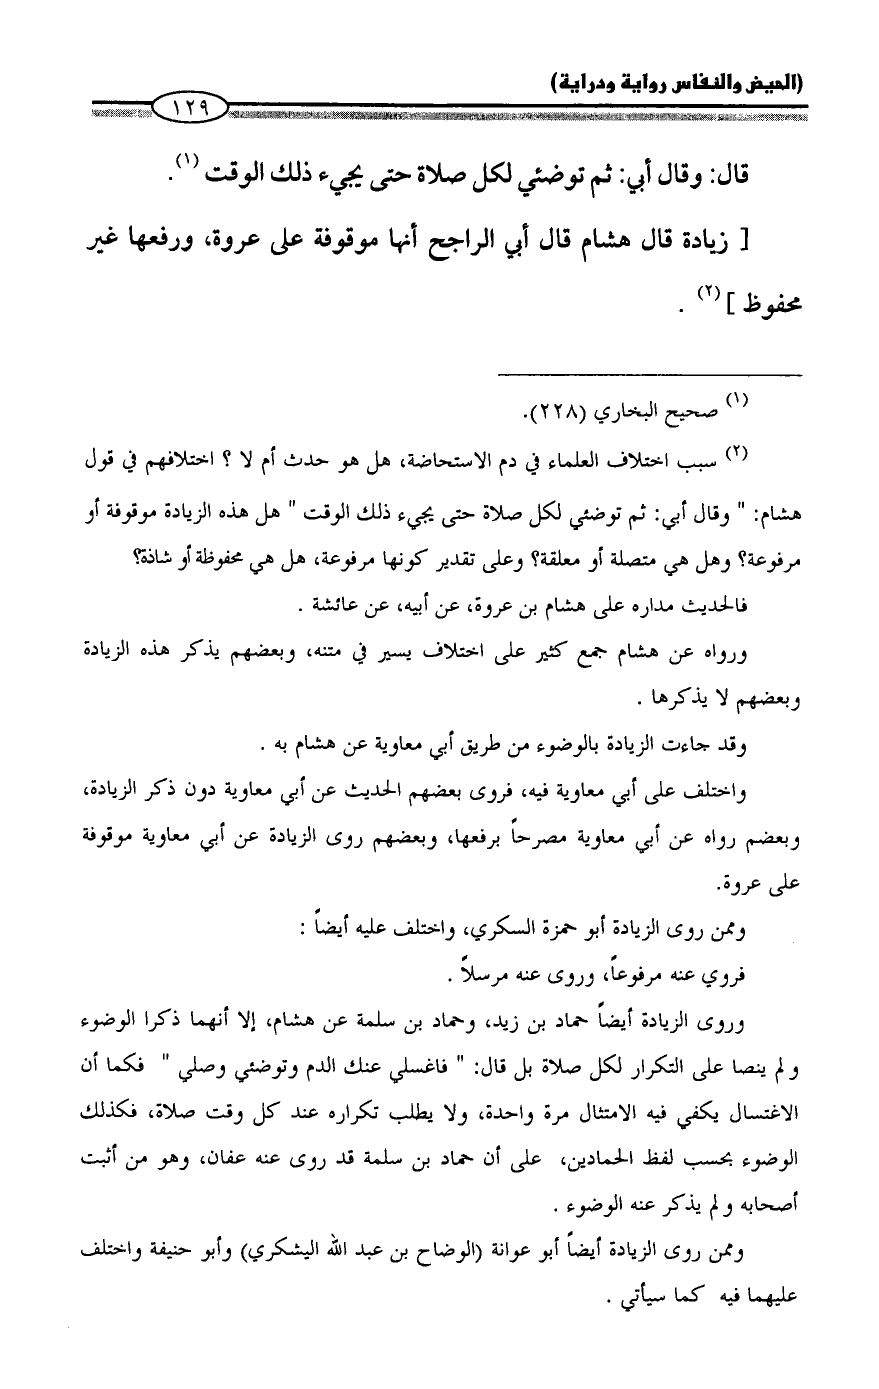 (الحيض والنفاس رواية ودراية)
١٢٩
قال: وقال أبي: ثم توضئي لكل صلاة حتى يجيء ذلك الوقت (١).
[ زيادة قال هشام قال أبي الراجح أنها موقوفة على عروة، ورفعها غير
محفوظ ] (٢) .
(١) صحيح البخاري (٢٢٨).
(٢) سبب اختلاف العلماء في دم الاستحاضة، هل هو حدث أم لا ؟ اختلافهم في قول
هشام: " وقال أبي: ثم توضئي لكل صلاة حتى يجيء ذلك الوقت " هل هذه الزيادة موقوفة أو
مرفوعة؟ وهل هي متصلة أو معلقة؟ وعلى تقدير كونها مرفوعة، هل هي محفوظة أو شاذة؟
فالحديث مداره على هشام بن عروة، عن أبيه، عن عائشة .
ورواه عن هشام جمع كثير على اختلاف يسير في متنه، وبعضهم يذكر هذه الزيادة
وبعضهم لا يذكرها .
وقد جاءت الزيادة بالوضوء من طريق أبي معاوية عن هشام به .
واختلف على أبي معاوية فيه، فروى بعضهم الحديث عن أبي معاوية دون ذكر الزيادة،
وبعضم رواه عن أبي معاوية مصرحاً برفعها، وبعضهم روى الزيادة عن أبي معاوية موقوفة
على عروة.
وممن روى الزيادة أبو حمزة السكري، واختلف عليه أيضاً :
فروي عنه مرفوعاً، وروى عنه مرسلاً .
وروى الزيادة أيضاً حماد بن زيد، وحماد بن سلمة عن هشام، إلا أنهما ذكرا الوضوء
ولم ينصا على التكرار لكل صلاة بل قال: " فاغسلي عنك الدم وتوضئي وصلي " فكما أن
الاغتسال يكفي فيه الامتثال مرة واحدة، ولا يطلب تكراره عند كل وقت صلاة، فكذلك
الوضوء بحسب لفظ الحمادين، على أن حماد بن سلمة قد روى عنه عفان، وهو من أثبت
أصحابه ولم يذكر عنه الوضوء .
وممن روى الزيادة أيضاً أبو عوانة (الوضاح بن عبد الله اليشكري) وأبو حنيفة واختلف
عليهما فيه كما سيأتي .